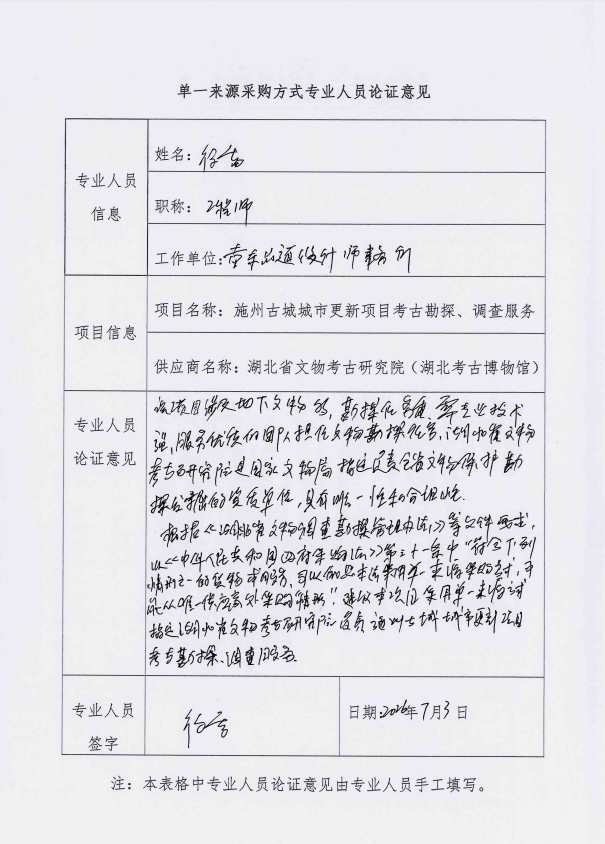 单一来源采购方式专业人员论证意见
专业人员
信息
姓名：徐
职称：工程师
工作单位：设计师事务所
项目信息
项目名称：施州古城城市更新项目考古勘探、调查服务
供应商名称：湖北省文物考古研究院（湖北考古博物馆）
专业人员
论证意见
该项目涉及地下文物多，勘探任务重，需专业技术
强，服务优质的团队担任文物勘探任务，湖北省文物
考古研究院是国家文物局指定负责全省文物保护勘
探发掘的资质单位，具有唯一性和合理性。
根据《湖北省文物调查勘探管理办法》等文件要求，
以《中华人民共和国政府采购法》第三十一条中“符合下列
情形之一的货物或服务，可以依照本法采用单一来源采购方式，只
能从唯一供应商处采购的情形”。建议本次采用单一来源方式
指定湖北省文物考古研究院负责施州古城城市更新项目
考古勘探、调查服务。
专业人员
签字
徐
日期：2026年7月3日
注：本表格中专业人员论证意见由专业人员手工填写。